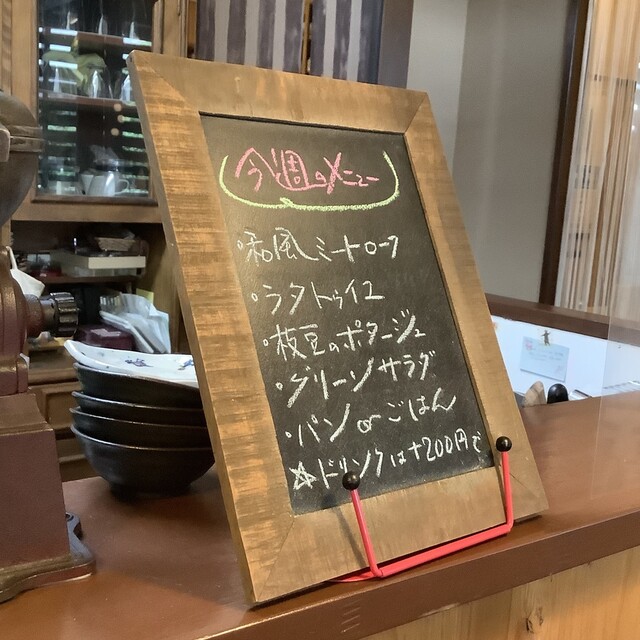 今週のメニュー
・和風ミートローフ
・ラタトゥイユ
・枝豆のポタージュ
・グリーンサラダ
・パン or ごはん
☆ドリンクは+200円で